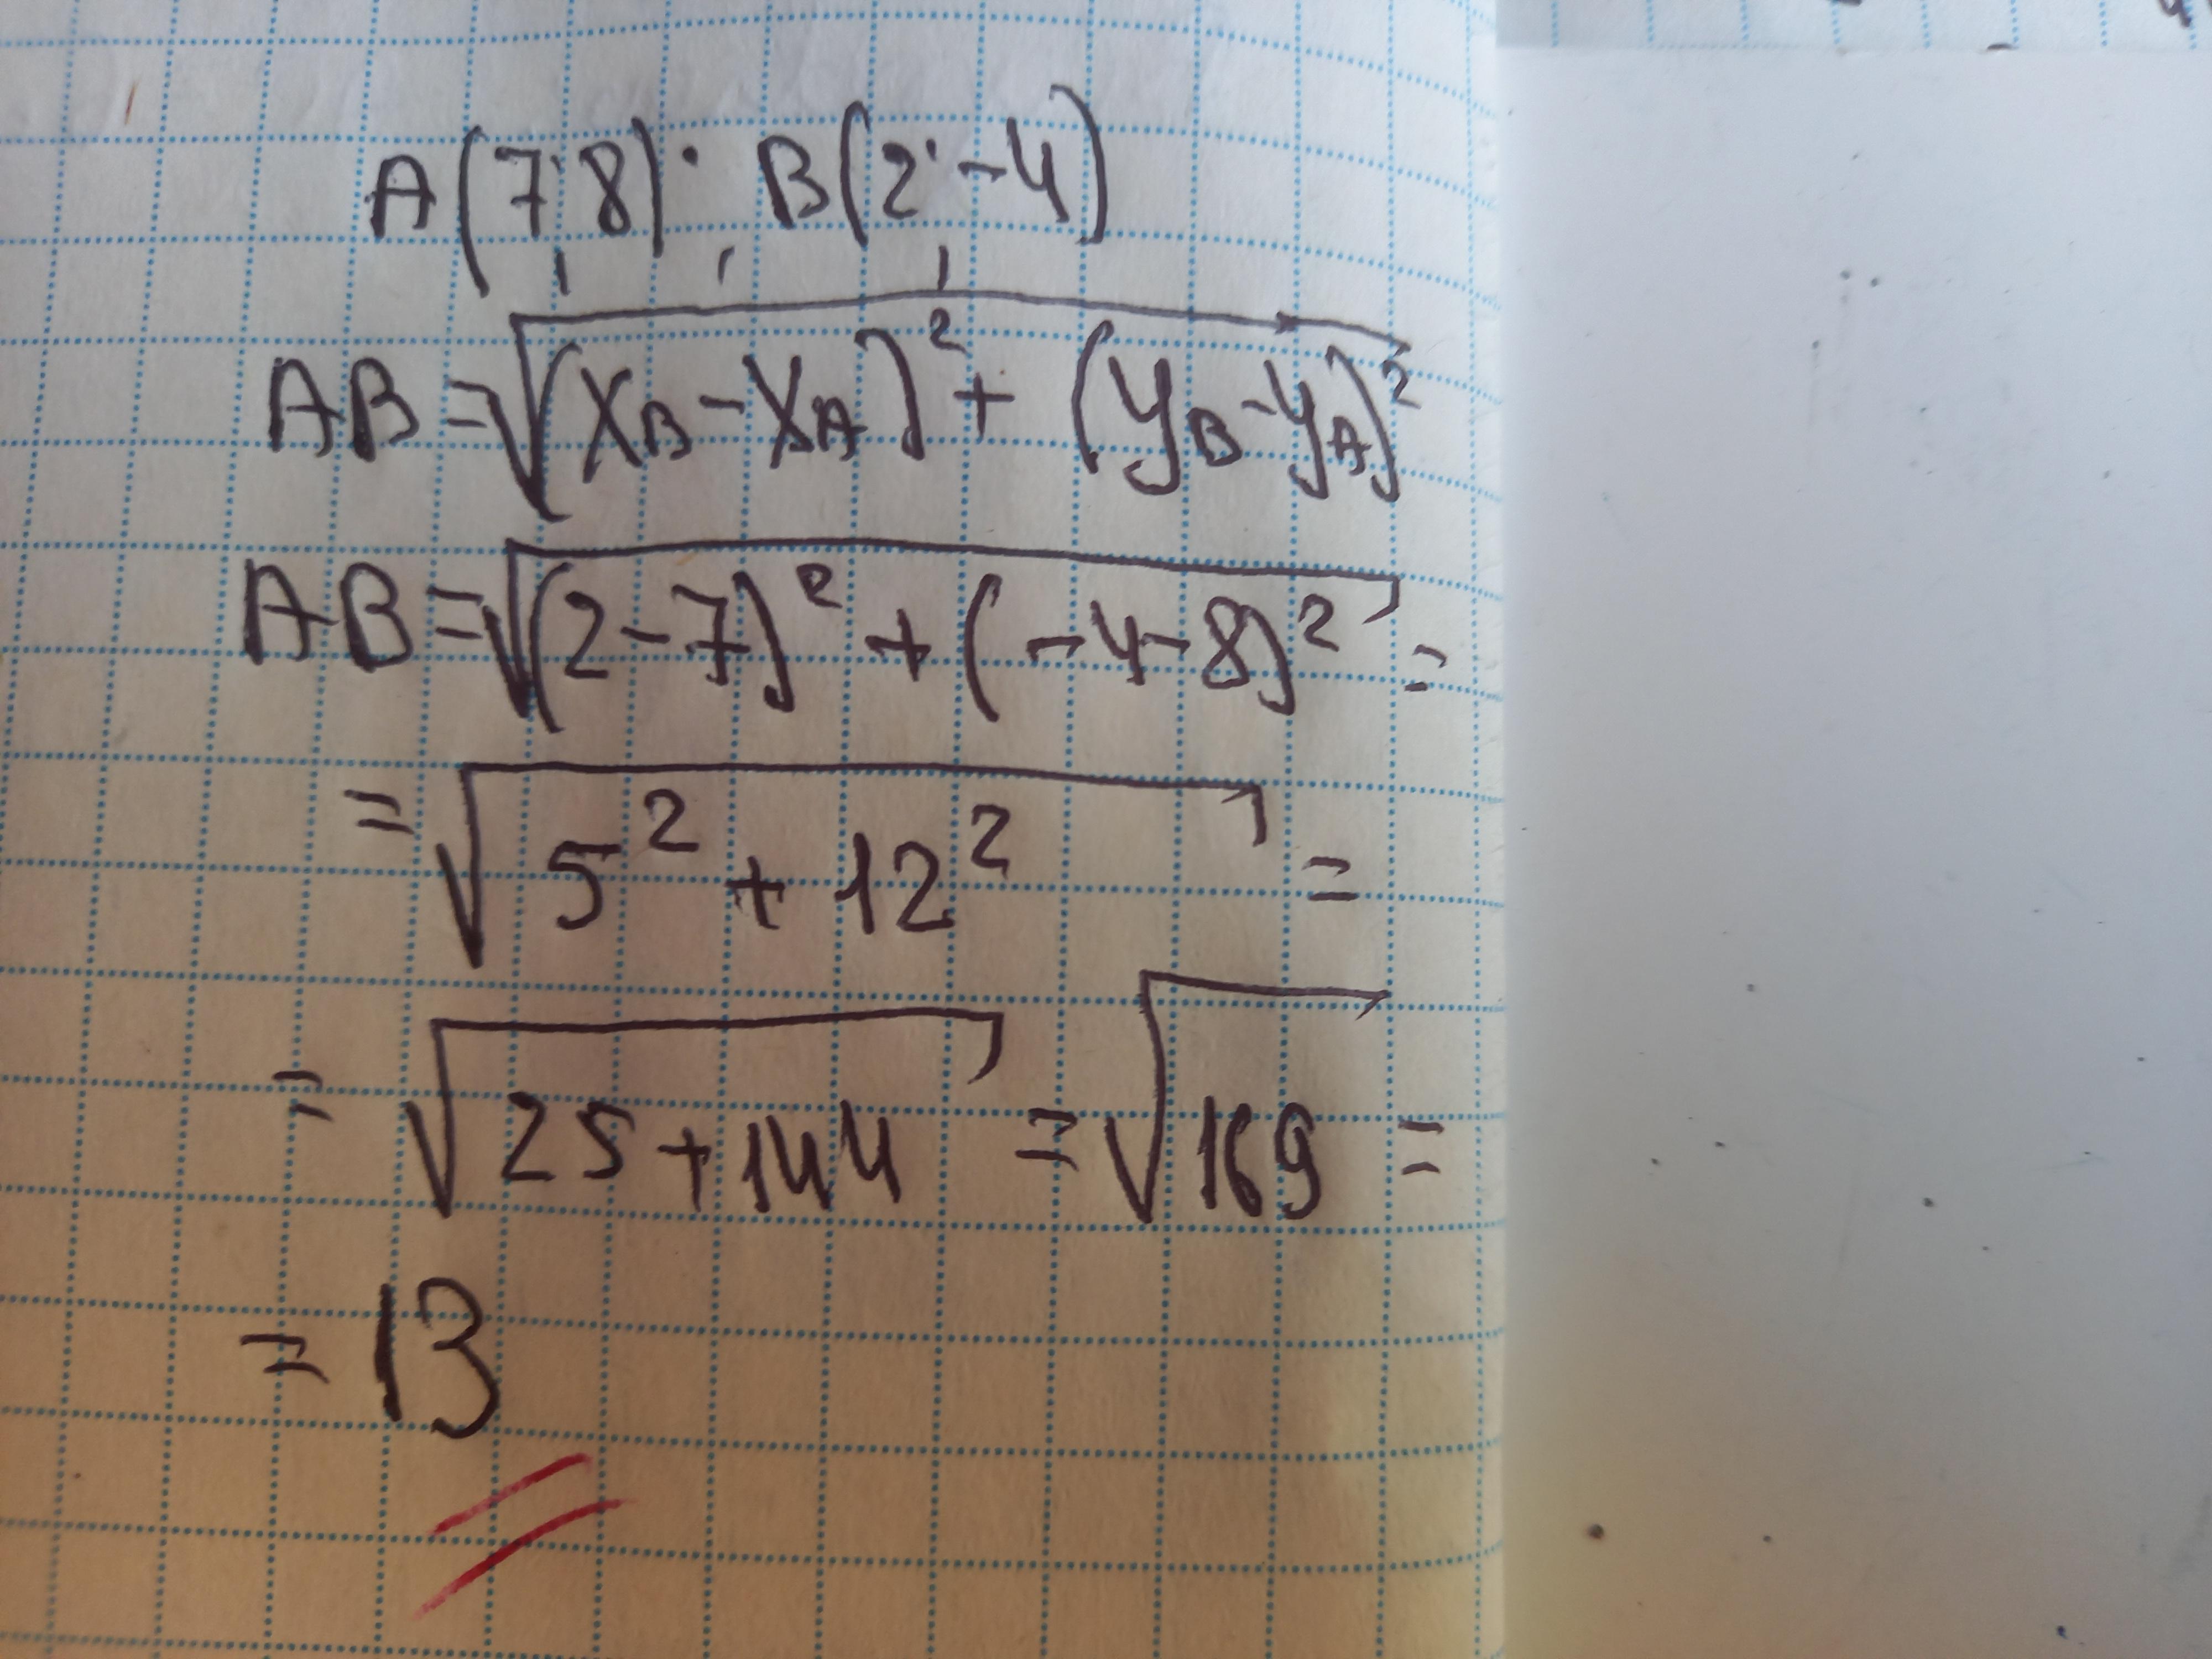 A(7;8); B(2;-4)
AB=√(x_B-x_A)²+(y_B-y_A)²
AB=√(2-7)²+(-4-8)²=
=√5²+12²=
=√25+144=√169=
=13